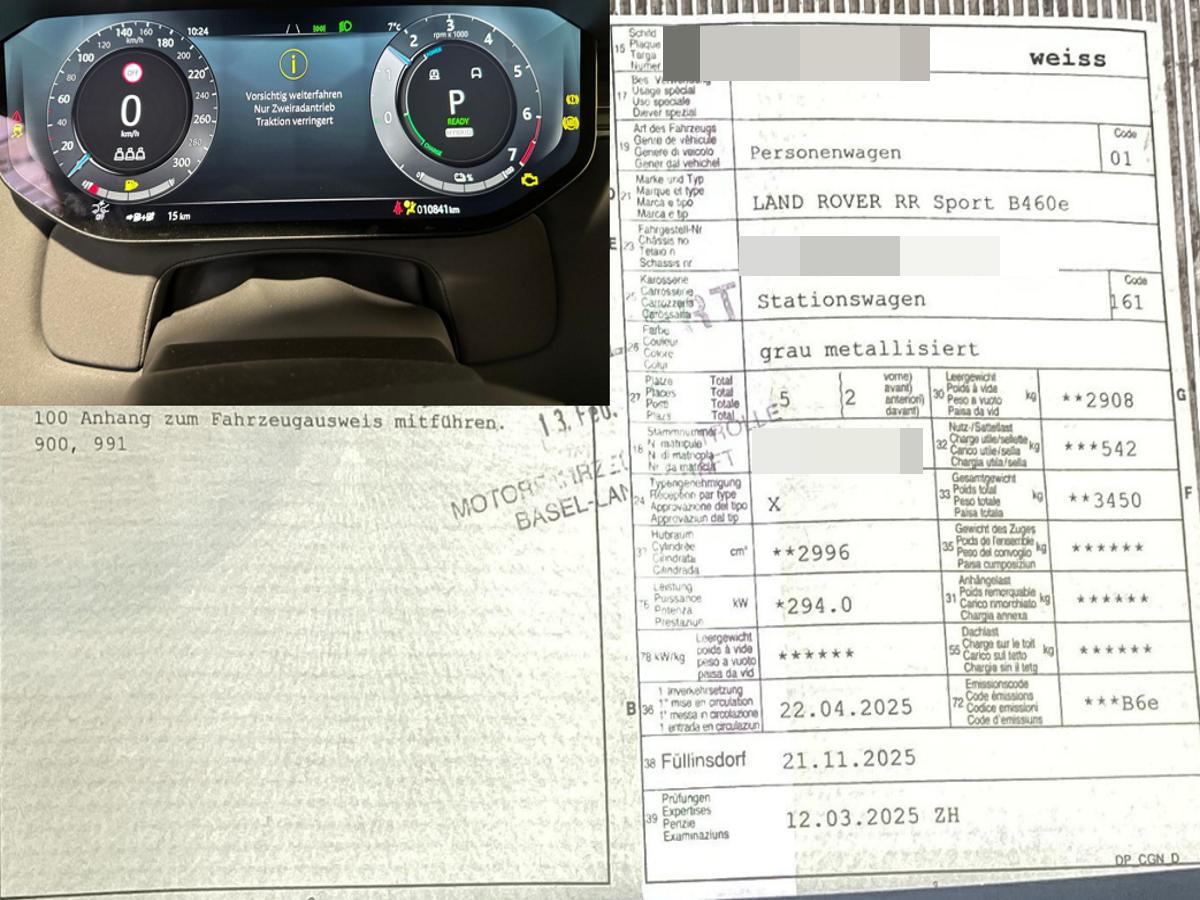 140 160
km/h
120
180
100
200
80
220
60
240
40
260
20
280
300
10:24
7°c
OFF
0
km/h
Vorsichtig weiterfahren
Nur Zweiradantrieb
Traktion verringert
rpm x 1000
0
1
2
3
4
5
6
7
POWER
P
READY
HYBRID
CHARGE
15 km
010841km
100 Anhang zum Fahrzeugausweis mitführen.
900, 991
13. Feb.
BASEL-LAN
15 Schild
Plaque
Targa
Numer
weiss
17 Usage spécial
Uso speciale
Diever spezial
19 Art des Fahrzeugs
Genre de véhicule
Genere di veicolo
Gener dal vehichel
Personenwagen
Code
01
21 Marke und Typ
Marque et type
Marca e tipo
Marca e tip
LAND ROVER RR Sport B460e
E 23 Fahrgestell-Nr
Châssis no
Telaio n
Schassis nr
25 Karosserie
Carrosserie
Carrozzeria
Carossaria
Stationswagen
Code
161
26 Farbe
Couleur
Colore
Colur
grau metallisiert
27 Plätze Total
Places Total
Posti Totale
Plazs Total
5
2
vorne)
avant)
anteriori)
davant)
30 Leergewicht
Poids à vide
Peso a vuoto
Paisa da vid
kg
**2908
G
18 Stammnummer
N matricule
N di matricola
Nr. da matricla
32 Nutz-/Sattellast
Charge utile/sellette
Carico utile/sella
Chargia utila/sella
kg
***542
24 Typengenehmigung
Réception par type
Approvazione del tipo
Approvaziun dal tip
X
33 Gesamtgewicht
Poids total
Peso totale
Paisa totala
kg
**3450
F
37 Hubraum
Cylindrée
Cilindrata
Cilindrada
cm³
**2996
35 Gewicht des Zuges
Poids de l'ensemble
Peso del convoglio
Paisa cumposiziun
kg
******
76 Leistung
Puissance
Potenza
Prestaziun
kW
*294.0
31 Anhängelast
Poids remorquable
Carico rimorchiato
Chargia annexa
kg
******
78 kW/kg
Leergewicht
poids à vide
peso a vuoto
paisa da vid
******
55 Dachlast
Charge sur le toit
Carico sul tetto
Chargia sin il tetg
kg
******
B 36 1 Inverkehrsetzung
1e mise en circulation
1a messa in circolazione
1 entrada en circulaziun
22.04.2025
72 Emissionscode
Code émissions
Codice emissioni
Code d'emissiuns
***B6e
38 Füllinsdorf
21.11.2025
39 Prüfungen
Expertises
Perizie
Examinaziuns
12.03.2025 ZH
DP_CGN_D